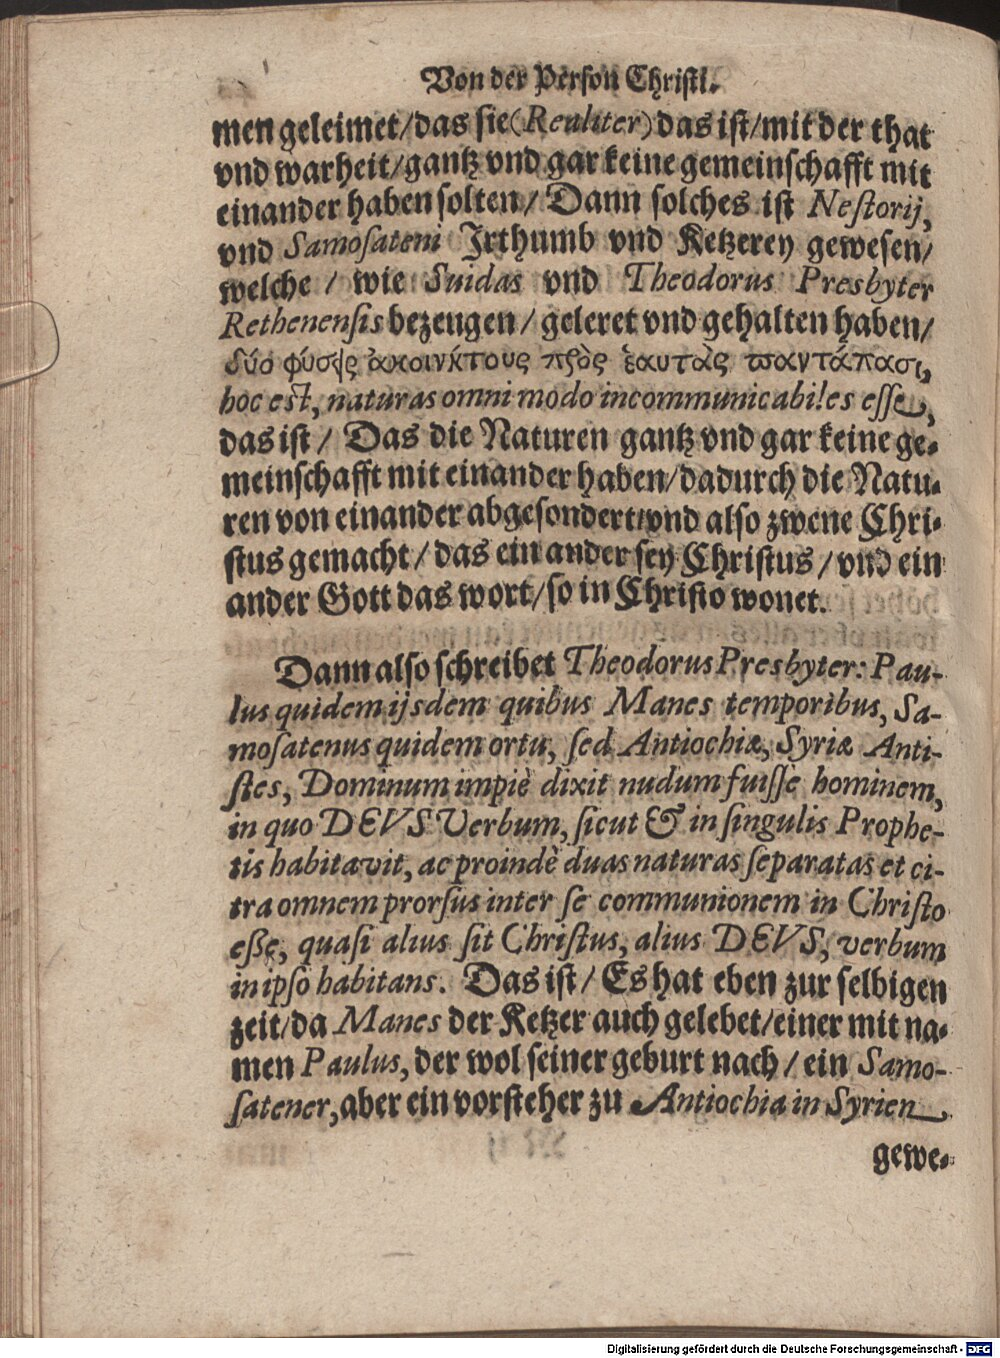 Von der Person Christi.
men geleimet/das sie (Realiter) das ist/mit der that
vnd warheit/gantz vnd gar keine gemeinschafft mit
einander haben solten/ Dann solches ist Nestorij,
vnd Samosateni Irthumb vnd Ketzerey gewesen/
welche / wie Suidas vnd Theodorus Presbyter
Rethenensis bezeugen / geleret vnd gehalten haben/
δύο φύσεις ἀκοινήτους πρὸς ἑαυτὰς παντάπασι,
hoc est, naturas omni modo incommunicabiles esse,
das ist / Das die Naturen gantz vnd gar keine ge-
meinschafft mit einander haben/dadurch die Natu-
ren von einander abgesondert/vnd also zwene Chri-
stus gemacht / das ein ander sey Christus / vnd ein
ander Gott das wort/so in Christo wonet.
Dann also schreibet Theodorus Presbyter: Pau-
lus quidem ijsdem quibus Manes temporibus, Sa-
mosatenus quidem ortu, sed Antiochiæ, Syriæ Anti-
stes, Dominum impiè dixit nudum fuisse hominem,
in quo DEVS Verbum, sicut & in singulis Prophe-
tis habitavit, ac proindè duas naturas separatas et ci-
tra omnem prorsus inter se communionem in Christo
esse, quasi alius sit Christus, alius DEVS, verbum
in ipso habitans. Das ist / Es hat eben zur selbigen
zeit/da Manes der Ketzer auch gelebet/einer mit na-
men Paulus, der wol seiner geburt nach / ein Samo-
satener, aber ein vorsteher zu Antiochia in Syrien
gewe-
Digitalisierung gefördert durch die Deutsche Forschungsgemeinschaft - DFG